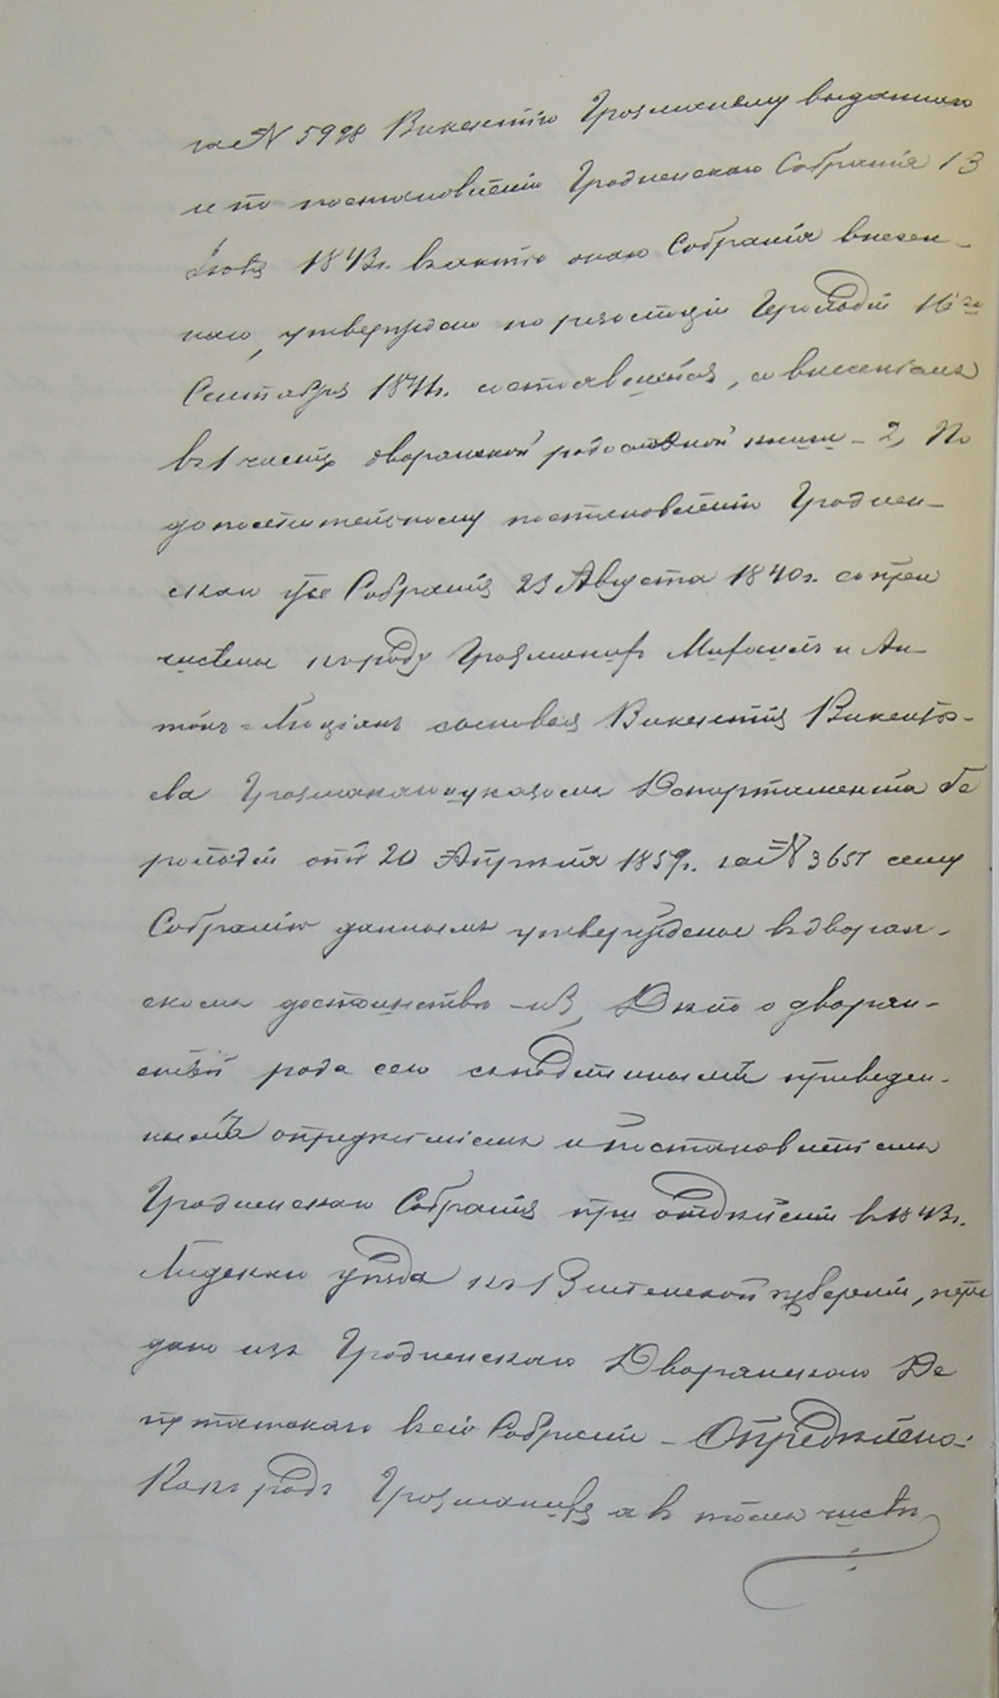 за № 5998 Викентію Грузманему выданнаго
и по постановленію Гродненскаго Собранія 13
1843 г. въ актъ онаго Собранія внесен-
наго, утверждено по резолюціи Герольдіи 16го
Сентября 1844 г. состоявшейся, со внесеніемъ
въ 1 часть дворянской родословной книги – 2, По
дополнительному постановленію Гроднен-
скаго Собранія 23 Августа 1840 г. сопри
числены къ роду Михаилъ и Ан-
тонъ = Люціянъ сыновья Викентія Викентье-
ва указомъ Департамента Ге
рольдіи отъ 20 Апрѣля 1859 г. за № 3651 сему
Собранію даннымъ утверждены въ дворян-
скомъ достоинствѣ – и 3, Дѣло о дворян-
ствѣ рода сего съ подлинными приведен-
ными опредѣленіемъ и постановленіемъ
Гродненскаго Собранія при отдѣленіи въ 1843 г.
Лидскаго уѣзда къ Виленской губерніи, пере
дано изъ Гродненскаго Дворянскаго Де
путатскаго въ сіе Собраніе – Опредѣлено:
Какъ родъ а въ томъ числѣ